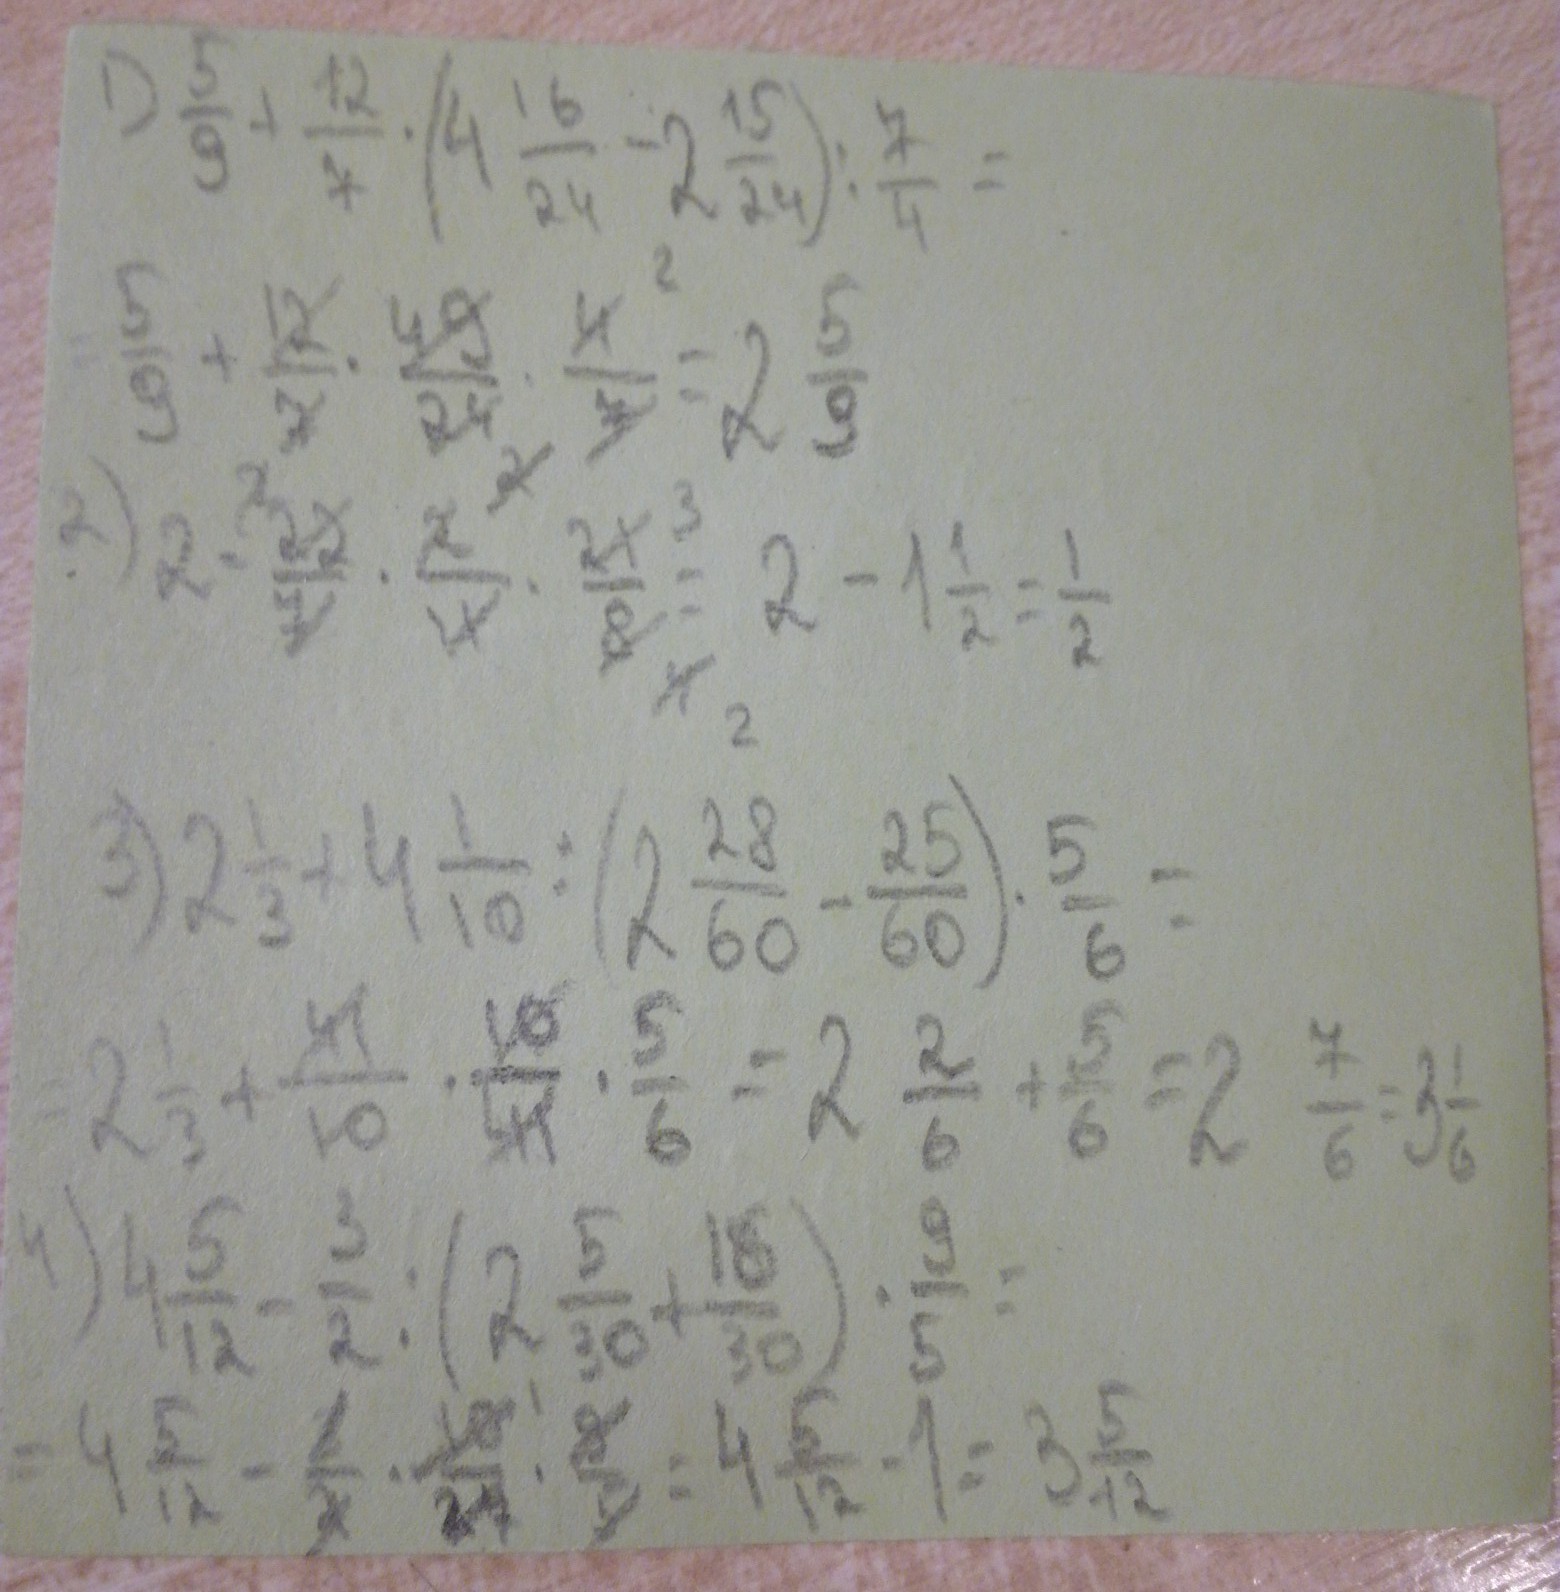 1) 5/9 + 12/7 · (4 16/24 - 2 15/24) : 7/4 =
= 5/9 + 12/7 · 49/24 · 4/7 2 = 2 5/9
2
2) 2 - 2 22/11 · 2/4 · 21/8 3 = 2 - 1 1/2 = 1/2
4
2
3) 2 1/3 + 4 1/10 : (2 28/60 - 25/60) · 5/6 =
= 2 1/3 + 41/10 · 10/41 · 5/6 = 2 2/6 + 5/6 = 2 7/6 = 3 1/6
4) 4 5/12 - 3/2 : (2 5/30 + 16/30) · 9/5 =
= 4 5/12 - · 10/27 1 · 9/5 = 4 5/12 - 1 = 3 5/12